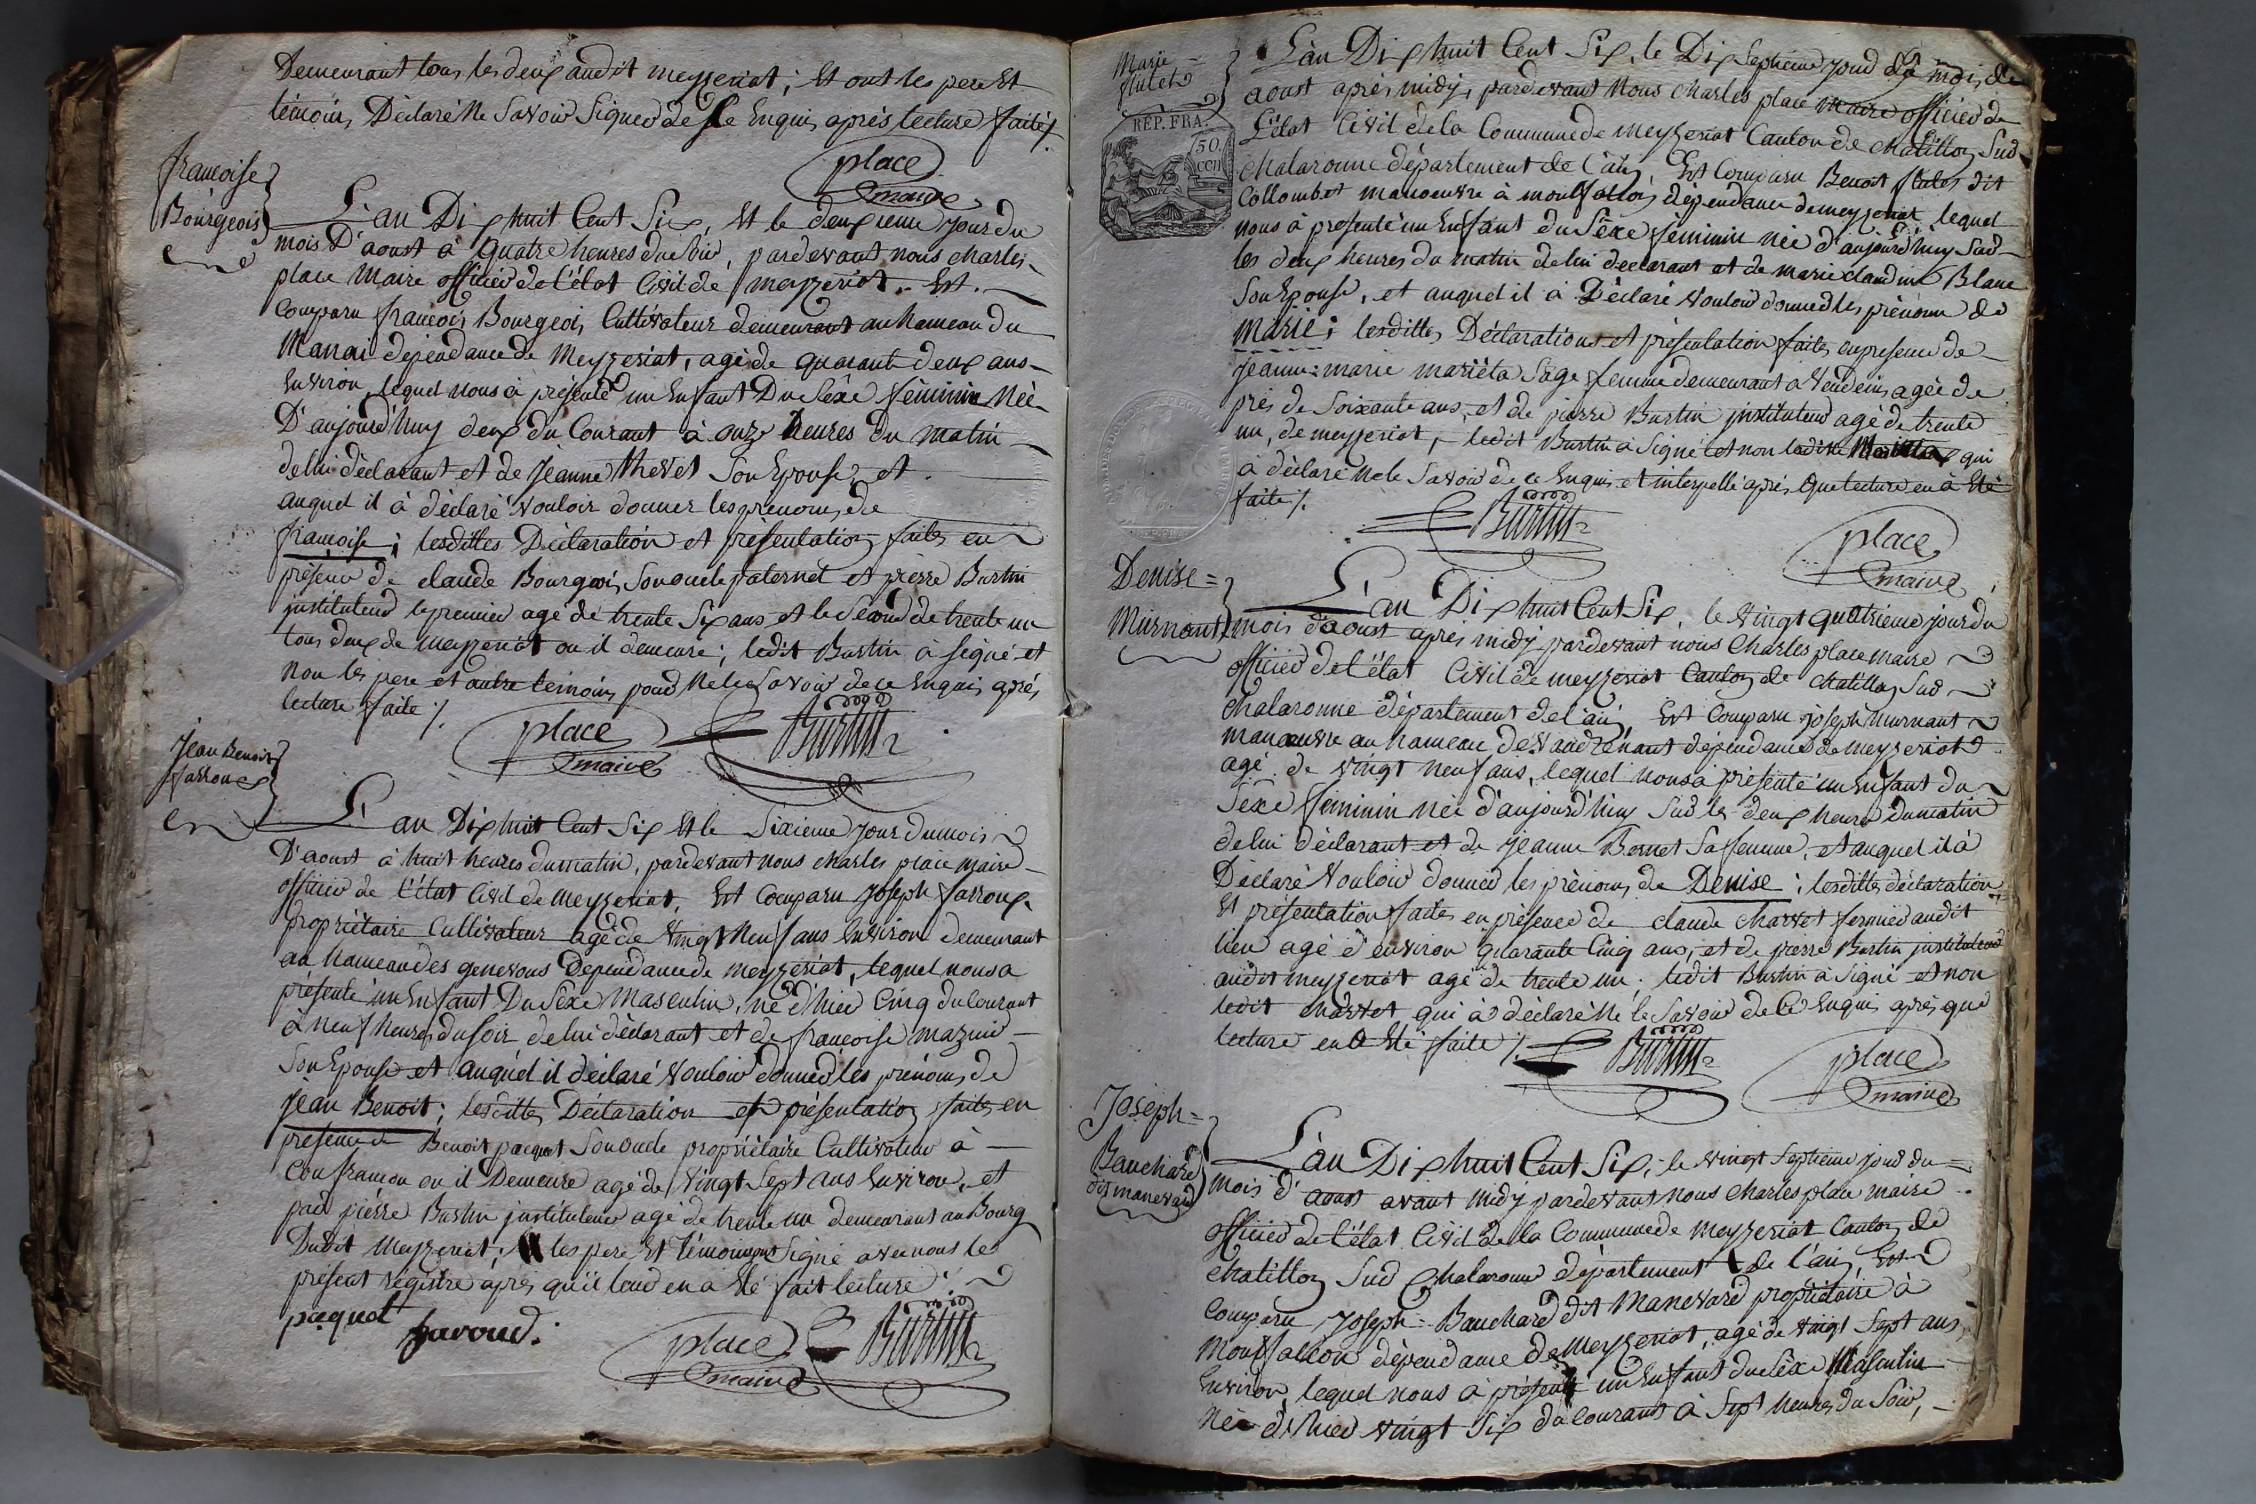 Demeurant tous les deux audit meyzeriat; Et ont les pere Et
témoins, Déclaré Ne Savoir Signer de Ce Enquis, après lecture faite /.
place
maire
françoise
Bourgeois
L'an Dix huit Cent Six, Et le deuxieme jour du
mois D'aoust à quatre heures du soir, pardevant nous charles
place Maire officier de l'état Civil de meyzeriat. Est
Comparu françois Bourgeois Cultivateur demeurant au hameau du
Marais dépendance de Meyzeriat, agé de quarante deux ans
Environ, lequel nous à présenté un Enfant Du Séxe féminin Née
D'aujourd'huy deux du Courant à onze heures du matin
de lui déclarant et de Jeanne thevet Son Epouse, et
auquel il à déclaré Vouloir donner les prenoms, de
françoise; lesdittes Déclaration et présentation faites en
présence de claude Bourgeois Son oncle paternel et pierre Burtin
instituteur le premier agé de trente Six ans et le Second de trente un
tous deux de meyzeriat ou il demeure; ledit Burtin à signé et
non les pere et autre témoins, pour Ne le Savoir de ce Enquis, après
lecture faite /.
place
maire
Burtin
Jean Benoit
farroux
L'an Dix huit Cent Six Et le Sixieme jour du mois
D'aoust à huit heures du matin, pardevant nous charles place maire
officier de l'état Civil de Meyzeriat, Est Comparu Joseph farroux
propriétaire Cultivateur agé de Vingt Neuf ans Environ demeurant
au hameau des genevous Dependance de meyzeriat, lequel nous a
présenté un Enfant Du Séxe Masculin, né d'hier Cinq du Courant
à neuf heures du soir de lui déclarant et de françoise mazuir
Son Epouse et auquel il déclaré Vouloir donner les prénoms, de
Jean Benoit; lesdittes Déclaration et présentation faites en
présence de Benoit pacquet Son oncle propriétaire Cultivateur à
Confrançon ou il Demeure agé de Vingt Sept ans Environ, et
par pierre Burtin instituteur agé de trente un demeurant au Bourg
Dudit Meyzeriat; les pere Et témoins ont Signé avec nous les
présent registre après qu'il leur en a Eté fait lecture.
paquet
farroud.
place
maire
Burtin
Marie
flutet
RÉP. FRA.
50.
CEN
L'an Dix huit Cent Six, le Dix Septieme jour du mois, de
aoust après midy, pardevant Nous charles place maire officier de
L'état Civil de la Commune de Meyzeriat Canton de Chatillon Sur
Chalaronne département de l'ain, Est Comparu Benoit flutet dit
Collombet manoeuvre à montfallcon dépendance de meyzeriat, lequel
nous à présenté un Enfant du Séxe féminin née d'aujourd'huy Sur
les deux heures du matin de lui declarant et de marie claudine Blanc
Son Epouse, et auquel il à Déclaré Vouloir donner les, prénoms de
Marie; lesdittes Déclarations et présentation faites en présence de
jeanne-marie mariéta Sage femme demeurant à Vendeins agée de
près de Soixante ans, et de pierre Burtin instituteur agé de trente
un, de meyzeriat, ledit Burtin à Signé et non laditte qui
à déclaré ne le Savoir de ce Enquis et interpellé après que lecture en à Eté
faite /.
Burtin
place
maire
Denise
Murnant
L'an Dix huit Cent Six, le Vingt quatrieme jour du
mois d'aoust après midy pardevant nous Charles place maire
officier de l'état Civil de meyzeriat Canton de Chatillon Sur
Chalaronne département de l'ain, Est Comparu joseph murnant
manoeuvre au hameau de Vandrénant dépendance de meyzeriat
agé de Vingt neuf ans, lequel nous à présenté un Enfant du
Séxe féminin née d'aujourd'huy Sur les deux heures du matin
de lui déclarant et de jeanne Bernet Sa femme, et auquel il à
Déclaré Vouloir donner les prénoms, de Denise; lesdittes déclaration
Et présentation faites en présence de claude Charvet fermier audit
lieu agé d'environ quarante Cinq ans; et de pierre Burtin instituteur
audit meyzeriat agé de trente un; ledit Burtin à Signé et non
ledit charvet qui à déclaré Ne le Savoir de Ce Enquis après que
lecture en à Eté faite /.
Burtin
place
maire
Joseph
Banchard
dit manevard
L'an Dix huit Cent Six, le Vingt Septieme jour du
mois d'aoust avant midy pardevant nous Charles place maire
officier de l'état Civil de la Commune de meyzeriat Canton de
Chatillon Sur Chalaronne département de l'ain, Est
Comparu Joseph Banchard dit Manevard propriétaire à
Montfallcon dépendance de Meyzeriat, agé de Vingt Sept ans
Environ, lequel nous à présenté un Enfant du Séxe Masculin
Née d'hier Vingt Six du Courant à Sept heures du Soir,